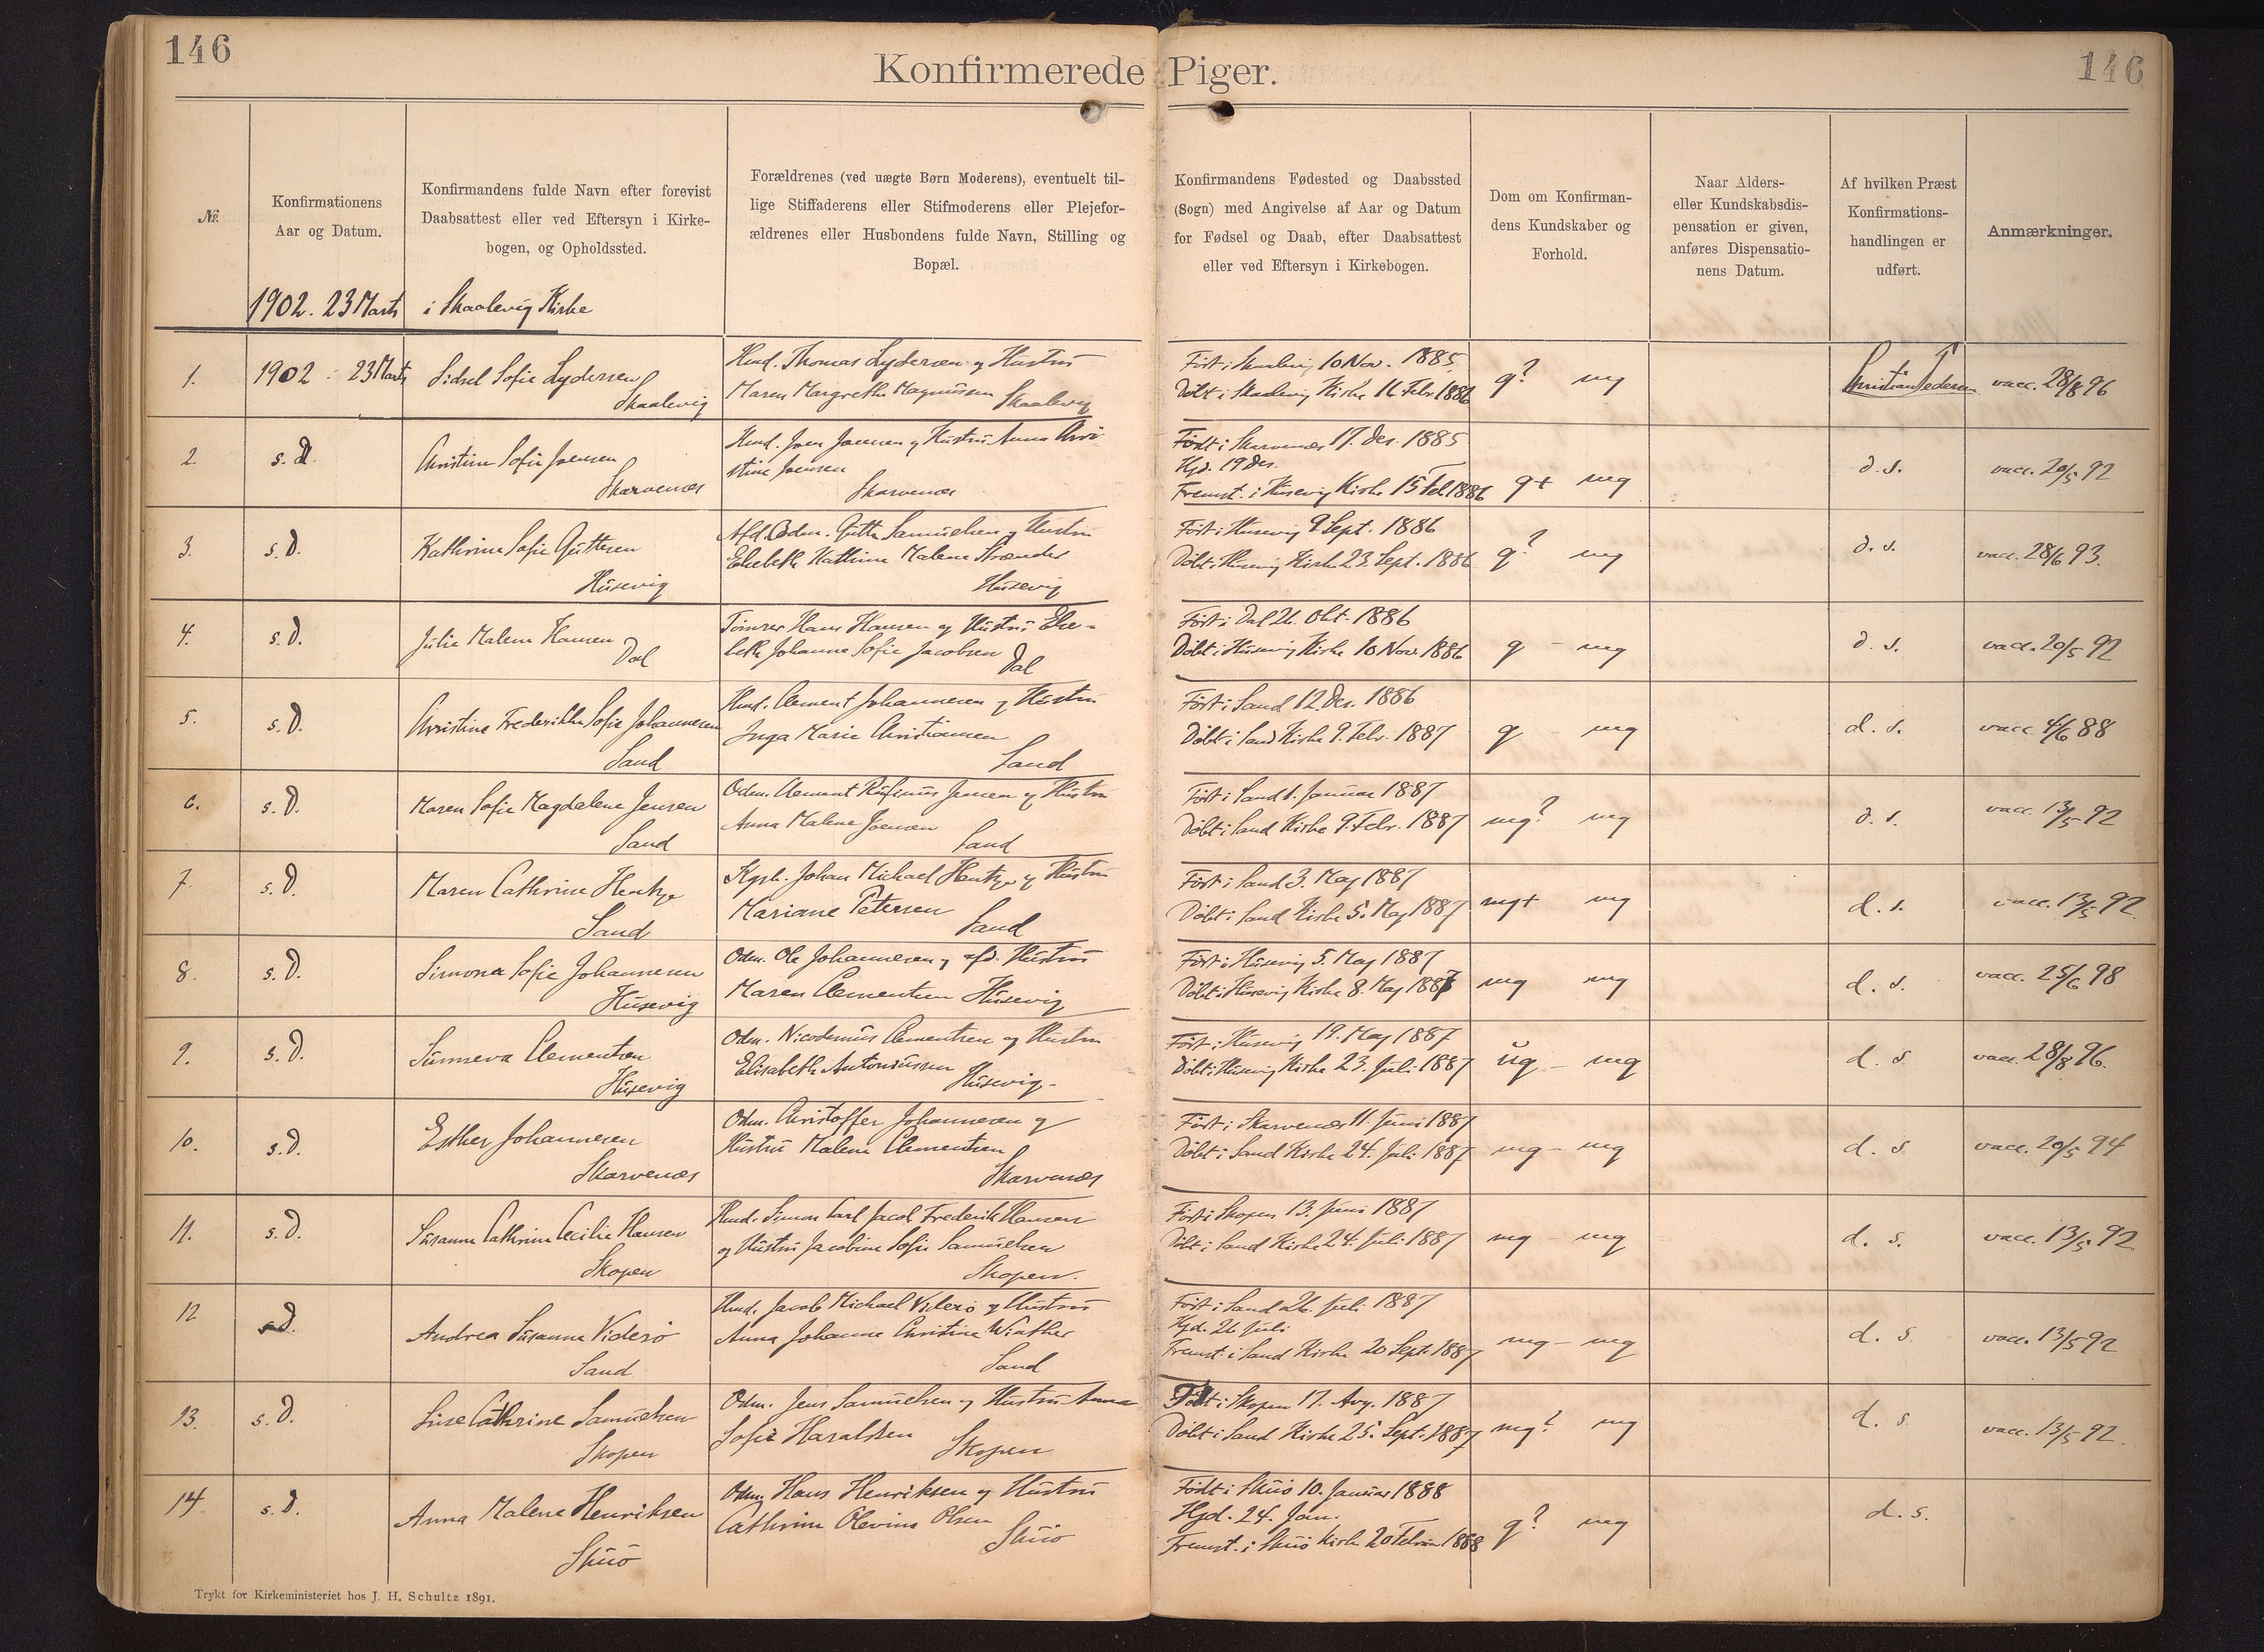 146
146
Konfirmerede Piger.
№.
Konfirmationens
Aar og Datum.
Konfirmandens fulde Navn efter forevist
Daabsattest eller ved Eftersyn i Kirke-
bogen, og Opholdssted.
Forældrenes (ved uægte Børn Moderens), eventuelt til-
lige Stiffaderens eller Stifmoderens eller Plejefor-
ældrenes eller Husbondens fulde Navn, Stilling og
Bopæl.
Konfirmandens Fødested og Daabssted
(Sogn) med Angivelse af Aar og Datum
for Fødsel og Daab, efter Daabsattest
eller ved Eftersyn i Kirkebogen.
Dom om Konfirman-
dens Kundskaber og
Forhold.
Naar Alders-
eller Kundskabsdis-
pensation er given,
anføres Dispensatio-
nens Datum.
Af hvilken Præst
Konfirmations-
handlingen er
udført.
Anmærkninger.
1902. 23 Marts i Skaalevig Kirke
1.
1902 23 Marts
Sidsel Sofie Lydersen
Skaalevig
Hmd. Thomas Lydersen og Hustru
Maren Margrethe Magnussen Skaalevig
Født i Skaalevig 10 Nov. 1885
Døbt i Skaalevig Kirke 16 Febr. 1886
g? mg
Christian Pedersen
vacc. 28/8 96
2.
s. D.
Christine Sofie Joensen
Skarvenæs
Hmd. Joen Joensen og Hustru Anna Chri-
stine Joensen
Skarvenæs
Født i Skarvenæs 17. Des. 1885
Hjd. 19 Des.
Fremst. i Husevig Kirke 15 Feb 1886
g+ mg
d. s.
vacc. 20/5 92
3.
s. D.
Kathrine Sofie Guttesen
Husevig
Afd. Odm. Gutte Samuelsen og Hustru
Elsebeth Kathrine Malene
Husevig
Født i Husevig 9 Sept. 1886
Døbt i Husevig Kirke 23. Sept. 1886
g? mg
d. s.
vacc. 28/6 93.
4.
s. D.
Julie Malene Hansen
Dal
Tømrer Hans Hansen og Hustru Else-
beth Johanne Sofie Jacobsen
Dal
Født i Dal 26. Okt. 1886
Døbt i Husevig Kirke 10 Nov 1886
g - mg
d. s.
vacc. 20/5 92
5.
s. D.
Christine Frederikke Sofie Johannesen
Sand
Hmd. Clement Johannesen og Hustru
Inga Marie Christiansen
Sand
Født i Sand 12. Des. 1886
Døbt i Sand Kirke 9. Febr. 1887
g - mg
d. s.
vacc. 4/6 88
6.
s. D.
Maren Sofie Magdalene Jensen
Sand
Odm. Clement Rufinus Jensen og Hustru
Anna Malene Joensen
Sand
Født i Sand 1. Januar 1887
Døbt i Sand Kirke 9. Febr. 1887
mg? mg
d. s.
vacc. 13/5 92
7.
s. D.
Maren Cathrine Hentze
Sand
Kgsb. Johan Michael Hentze og Hustru
Mariane Petersen
Sand
Født i Sand 3. Maj 1887
Døbt i Sand Kirke 5. Maj 1887
mg+ mg
d. s.
vacc. 13/5 92
8.
s. D.
Simona Sofie Johannesen
Husevig
Odm. Ole Johannesen og afd. Hustru
Maren Clementsen Husevig
Født i Husevig 5. Maj 1887
Døbt i Husevig Kirke 8. Maj 1887
mg mg
d. s.
vacc. 25/6 98
9.
s. D.
Sunneva Clementsen
Husevig
Odm. Nicodemus Clementsen og Hustru
Elisabeth Antoniussen
Husevig.
Født i Husevig 19. Maj 1887
Døbt i Husevig Kirke 23. Juli 1887
ug - mg
d. s
vacc. 28/8 96.
10.
s. D.
Esther Johannesen
Skarvenæs
Odm. Christoffer Johannesen og
Hustru Malene Clementsen
Skarvenæs
Født i Skarvenæs 11. Juni 1887
Døbt i Sand Kirke 24. Juli 1887
mg - mg
d. s.
vacc. 20/5 94
11.
s. D.
Susanne Cathrine Cecilie Hansen
Skopen
Hmd. Simon Carl Jacob Frederik Hansen
og Hustru Jacobine Sofie Samuelsen
Skopen.
Født i Skopen 13. Juni 1887
Døbt i Sand Kirke 24. Juli 1887
mg - mg
d. s.
vacc. 13/5 92
12
s D.
Andrea Susanna Viderø
Sand
Hmd. Jacob Michael Viderø og Hustru
Anna Johanne Christine Winther
Sand
Født i Sand 26. Juli 1887
Hjd. 26 Juli
Fremst. i Sand Kirke 20 Sept. 1887
mg - mg
d. s
vacc. 13/5 92
13.
s. D.
Lise Cathrine Samuelsen
Skopen
Odm. Jens Samuelsen og Hustru Anna
Sofie Haraldsen
Skopen
Født i Skopen 17. Aug. 1887
Døbt i Sand Kirke 25. Sept. 1887
mg? mg
d. s.
vacc. 13/5 92.
14.
s. D.
Anna Malene Henriksen
Skuø
Odm. Hans Henriksen og Hustru
Cathrine Olevine Olsen
Skuø
Født i Skuø 10. Januar 1888
Hjd. 24. Jan.
Fremst. i Skuø Kirke 20 Februar 1888
g? mg
d. s.
Trykt for Kirkeministeriet hos J. H. Schultz 1891.